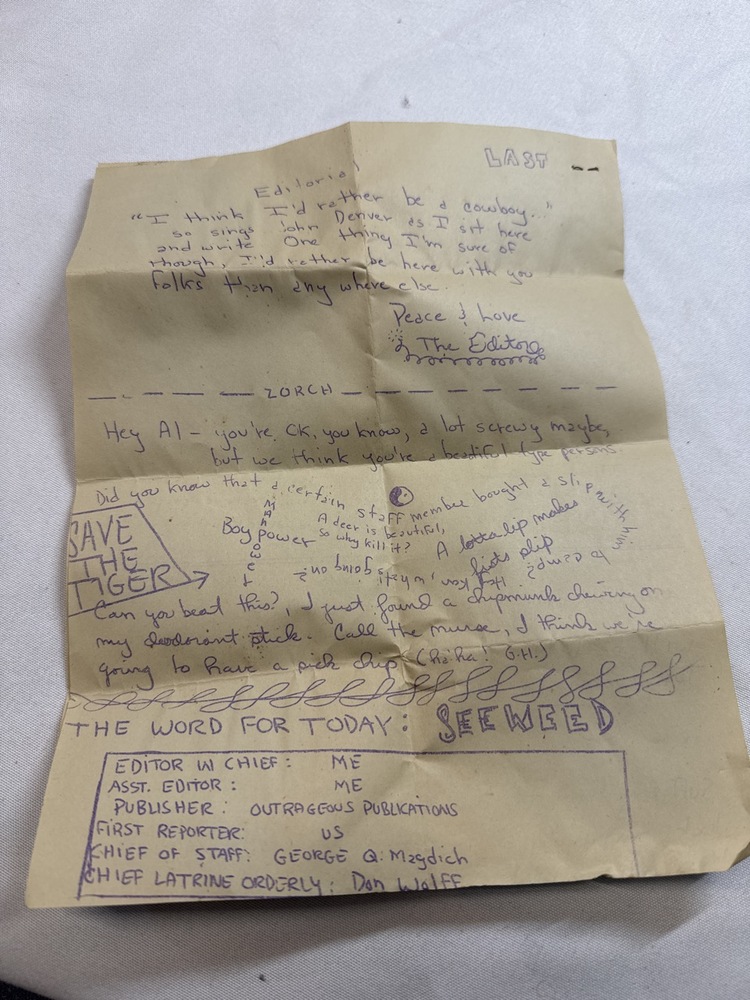 LAST
Editorial
"I think I'd rather be a cowboy..."
so sings John Denver as I sit here
and write One thing I'm sure of
though, I'd rather be here with you
folks than any where else.
Peace & Love
The Editor
ZORCH
Hey Al - you're OK, you know, a lot screwy maybe,
but we think you're a beautiful type persons.
Did you know that a certain staff member bought a slip with him
to camp? Hey Ron, what's going on?
SAVE
THE
TIGER
Boy power
A deer is beautiful,
so why kill it?
A lotta lip makes
fists slip
Can you beat this?, I just found a chipmunk chewing on
my deodorant stick. Call the nurse, I think we're
going to have a sick chip (ha ha! G.H.)
THE WORD FOR TODAY: SEEWEED
EDITOR IN CHIEF: ME
ASST. EDITOR: ME
PUBLISHER: OUTRAGEOUS PUBLICATIONS
FIRST REPORTER: US
CHIEF OF STAFF: GEORGE Q. Magdich
CHIEF LATRINE ORDERLY: Don Wolff